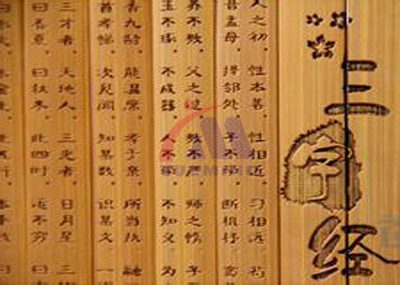 三字经
人之初 性本善 性相近 习相远 苟
昔孟母 择邻处 子不学 断机杼
养不教 父之过 师之惰 子
玉不琢 不成器 人不学 不知义 为
香九龄 能温席 孝于亲 所当执 融
首孝悌 次见闻 知某数 识某文 一
三才者 天地人 三光者 日月星 三
曰春夏 曰秋冬 此四时 运不穷 曰